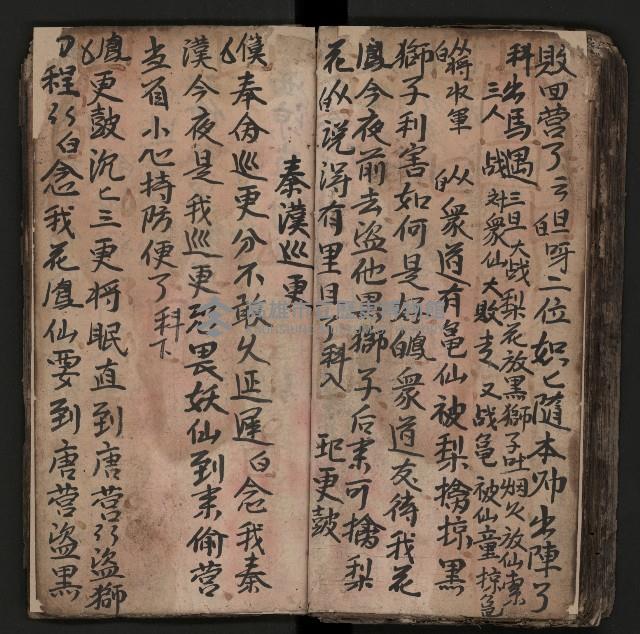 敗回营了云旦呀二位如匕隨本帅出陣了
科出馬遇三旦大战梨花放黑獅子吐烟火放仙索
三人战对衆仙大敗走又战龟被仙童掠龟
蔣水軍 白从衆道有龟仙被梨擒掠黑
獅子利害如何是好白鳳衆道友待我花
鳳今夜前去盗他黑獅子后来可擒梨
花白从说得有里且了科入 玘更鼓
秦漢巡更
漢奉命巡更分不敢久延遲白念我秦
漢今夜是我巡更恐畏妖仙到来偷营
当面小心持防便了科下
鳳更鼓沉匕三更将眠直到唐营行盗獅
了程行白念我花鳳仙要到唐营盗黑
高雄市立歷史博物館